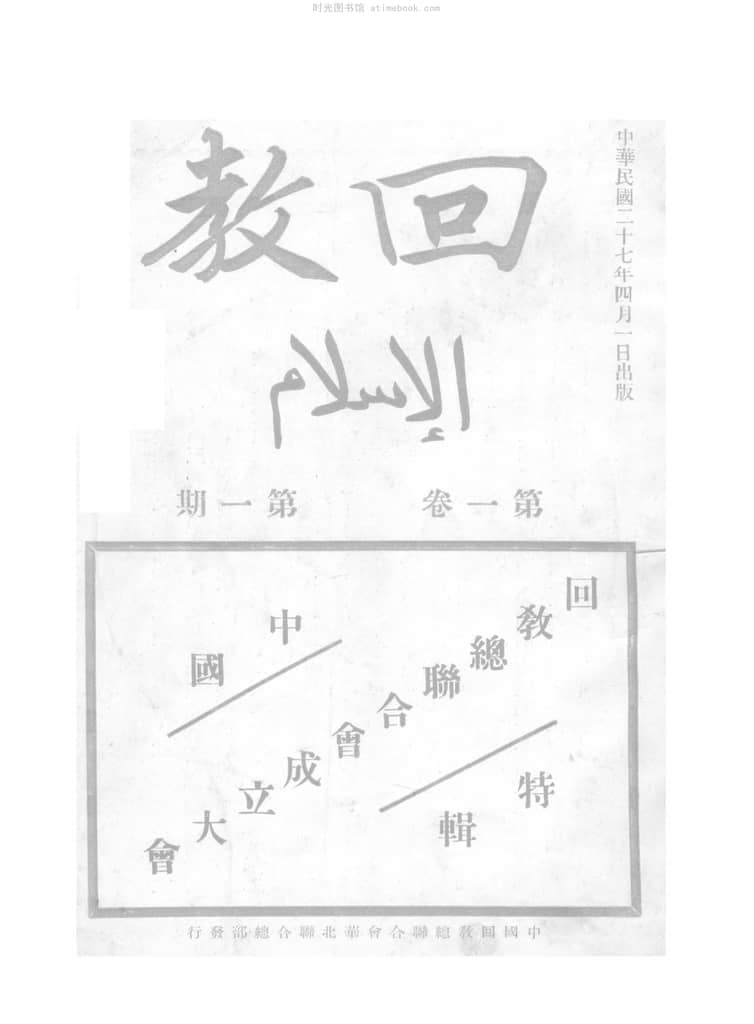 时光图书馆 atimebook.com
中華民國二十七年四月一日出版
回教
الإسلام
第一卷 第一期
中國
回教總聯合會成立大會
特輯
中國回教總聯合會華北聯合總部發行